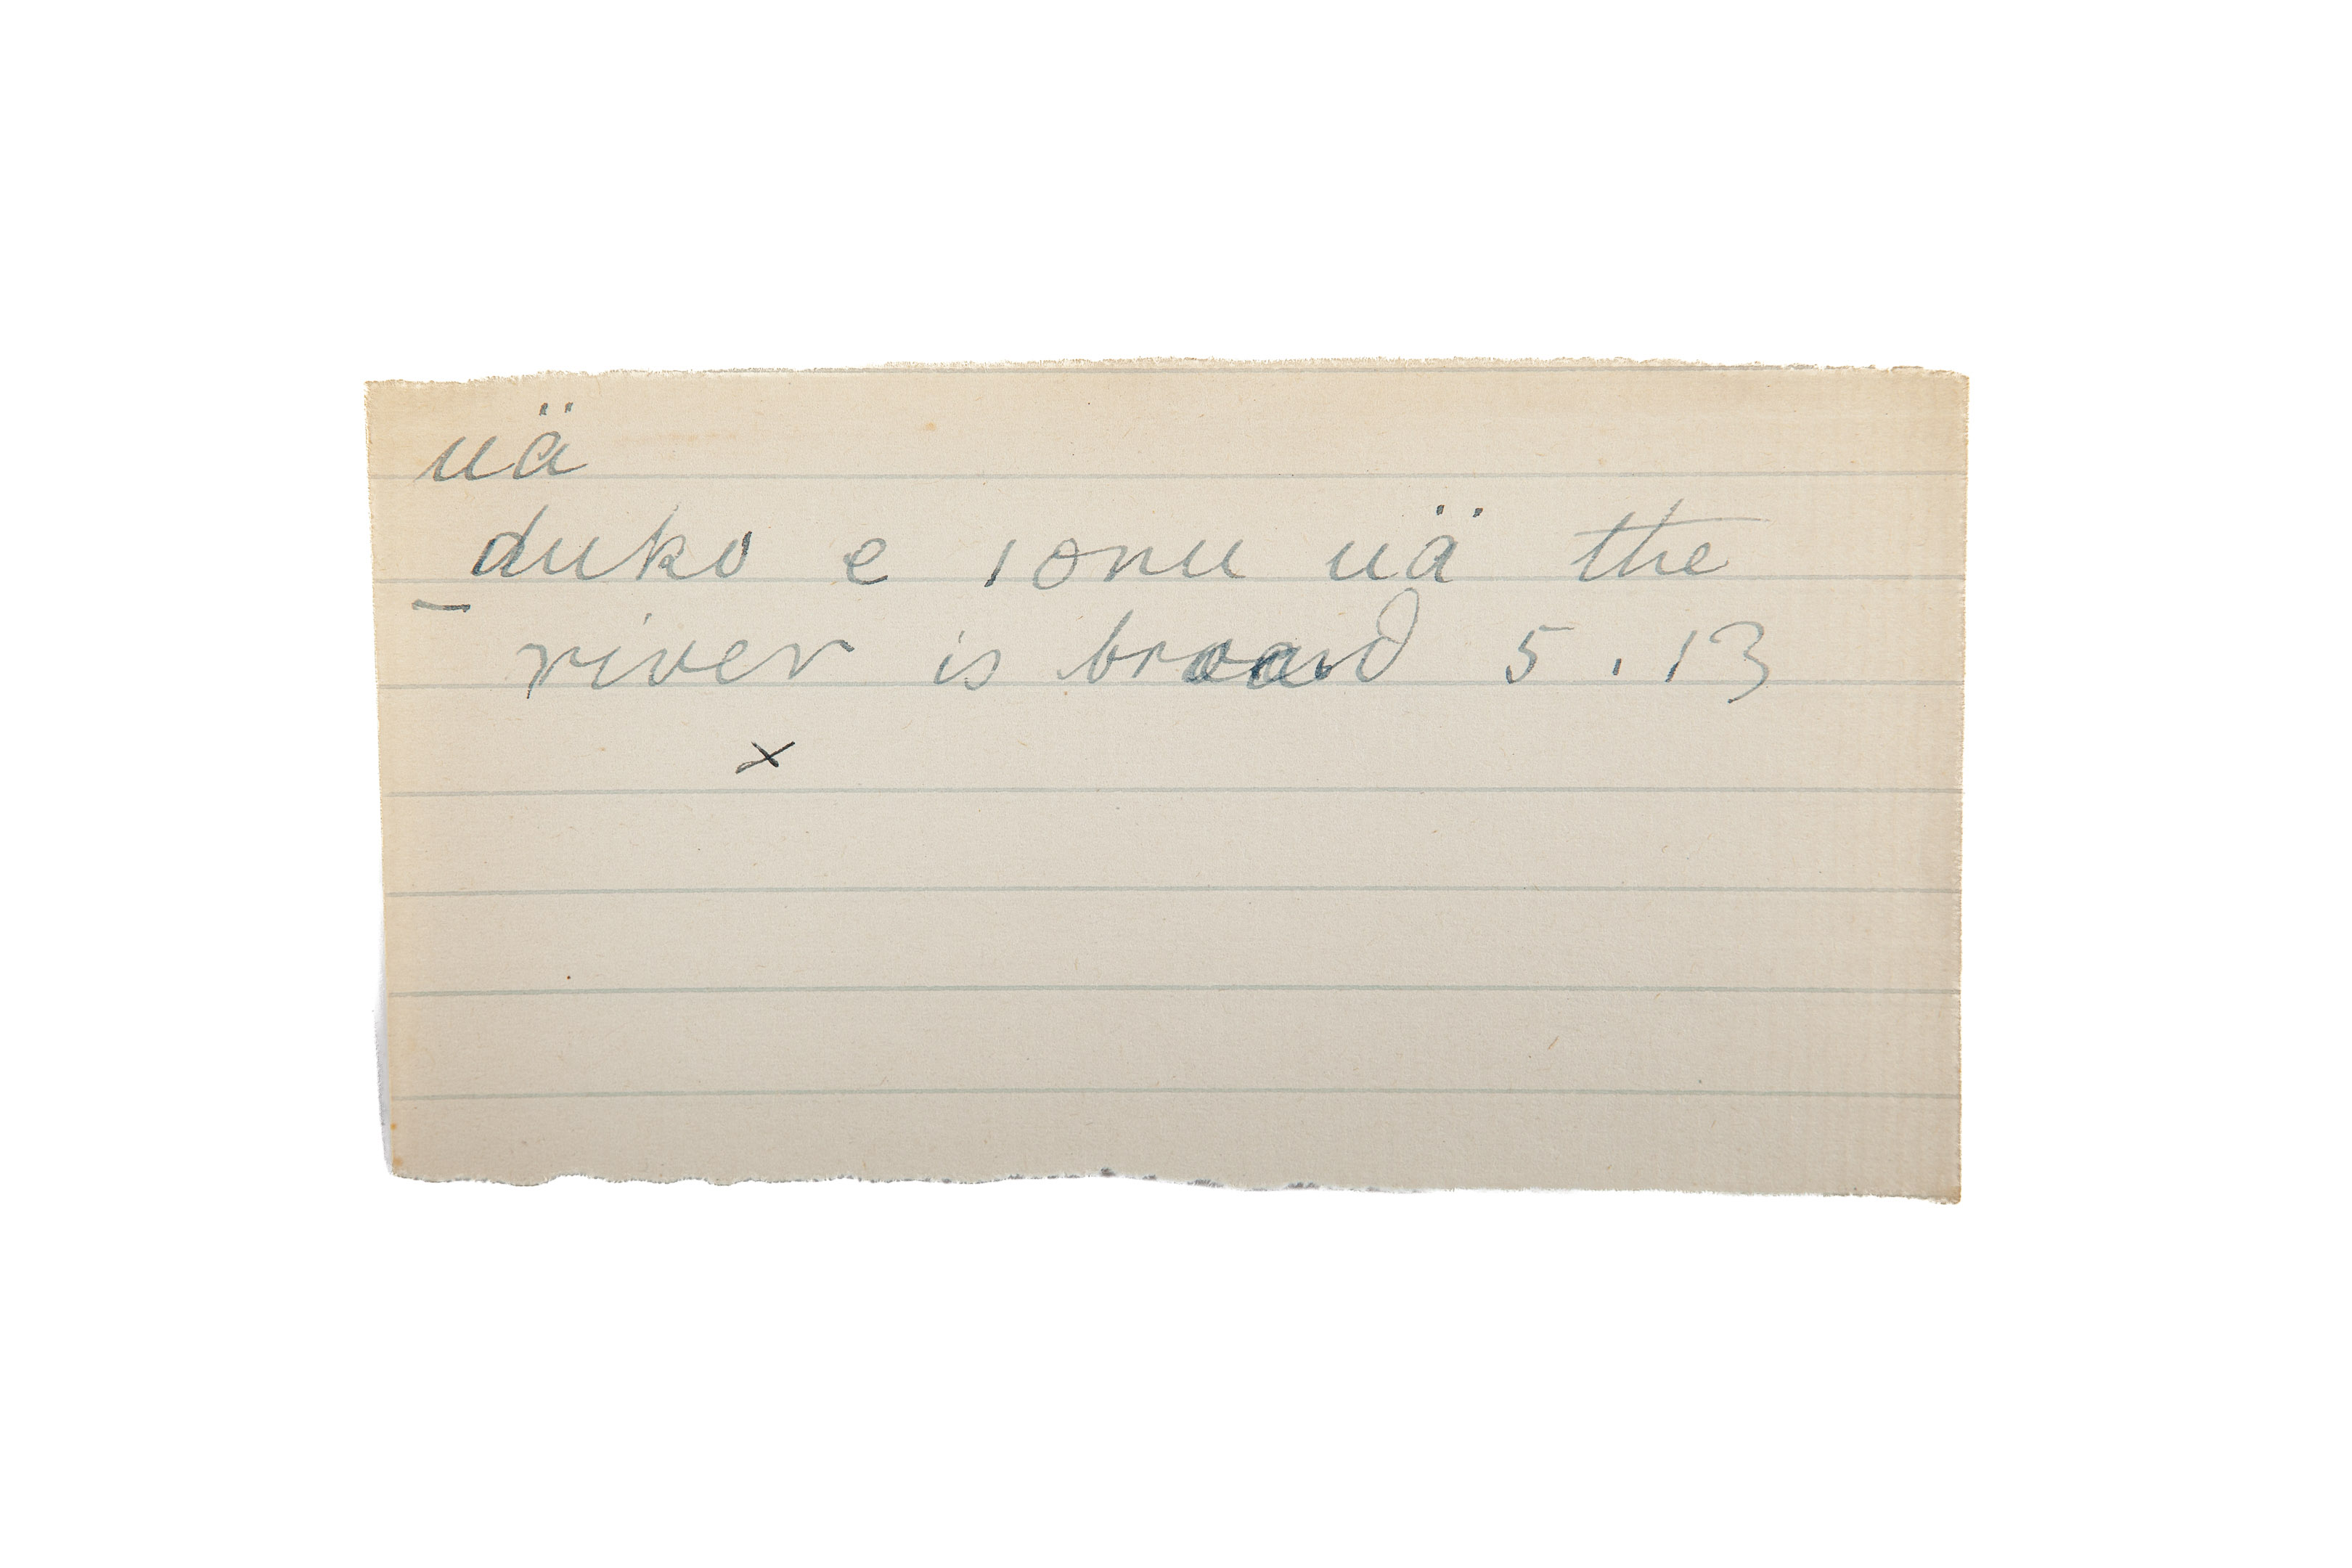 uä
duko e ıonu uä the
– river is broad 5.13
x